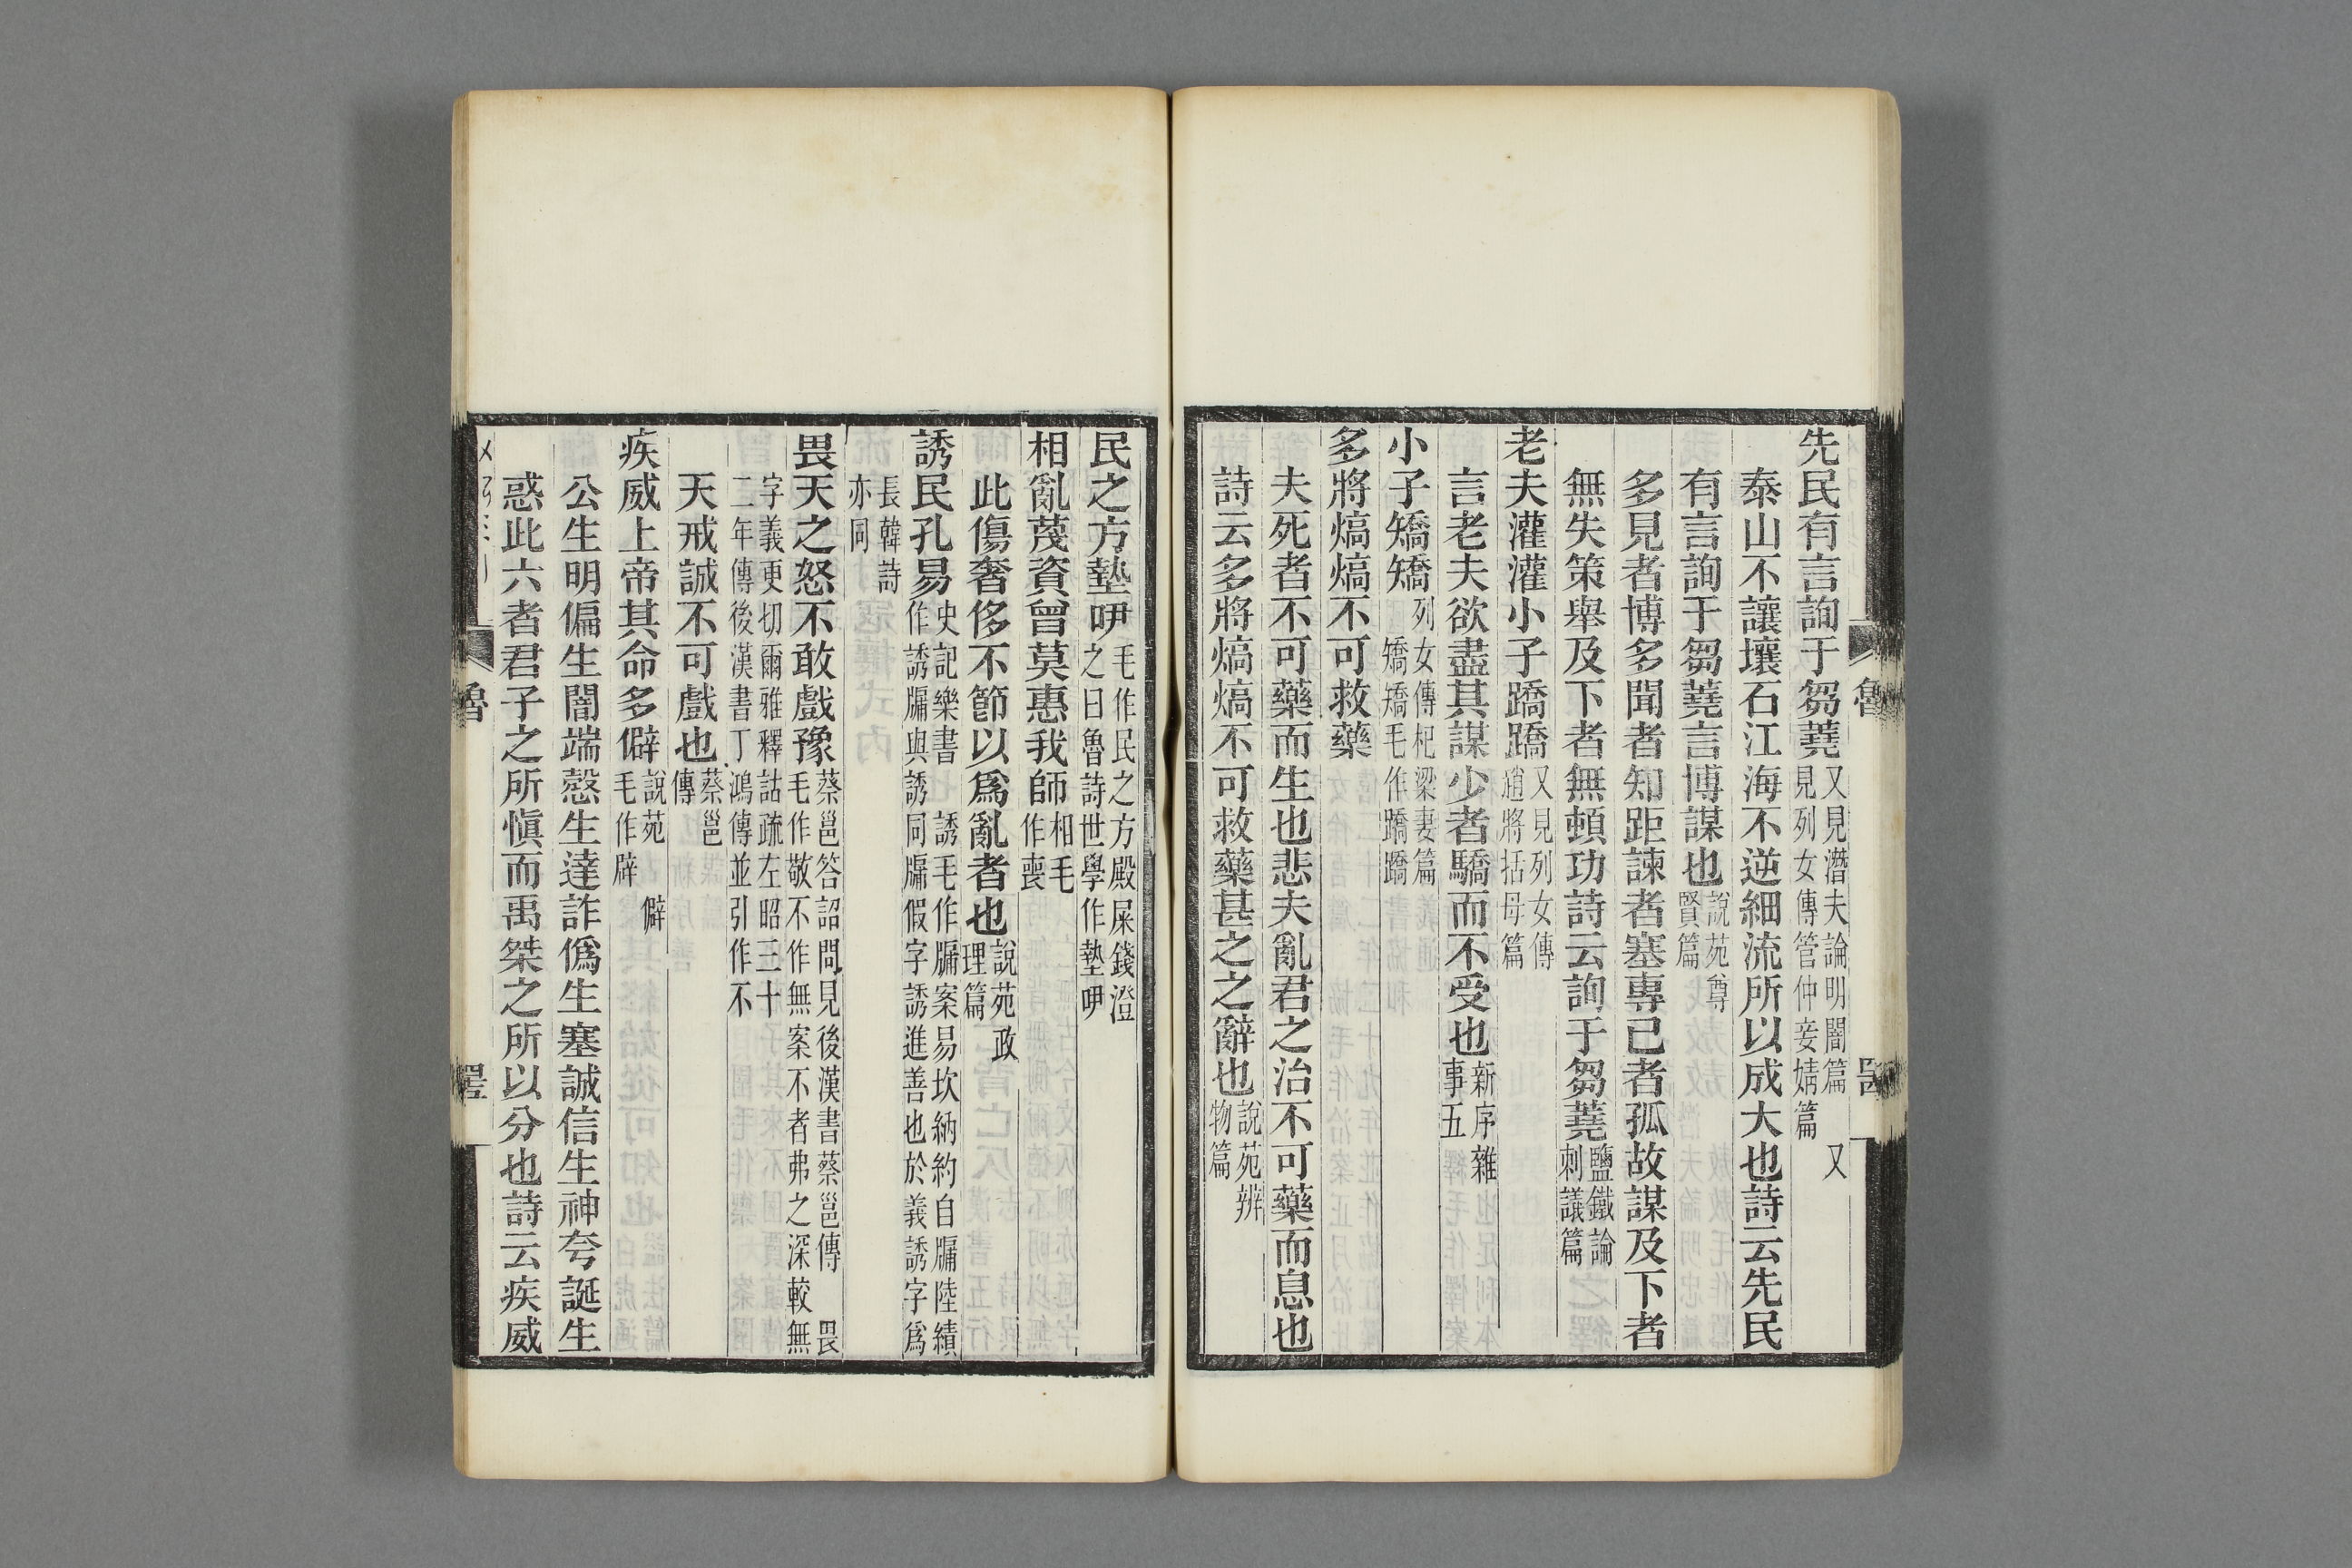 先民有言詢于芻蕘又見潛夫論明闇篇　又見列女傳管仲妾婧篇
泰山不讓壤石江海不逆細流所以成大也詩云先民
有言詢于芻蕘言博謀也說苑尊賢篇
多見者博多聞者知距諫者塞專己者孤故謀及下者
無失策舉及下者無頓功詩云詢于芻蕘鹽鐵論刺議篇
老夫灌灌小子蹻蹻又見列女傳趙將括母篇
言老夫欲盡其謀少者驕而不受也新序雜事五
小子矯矯列女傳杞梁妻篇矯矯毛作蹻蹻
多將熇熇不可救藥
夫死者不可藥而生也悲夫亂君之治不可藥而息也
詩云多將熇熇不可救藥甚之之辭也說苑辨物篇
民之方墊吚毛作民之方殿屎錢澄之曰魯詩世學作墊吚
相亂蔑資曾莫惠我師相毛作喪
此傷奢侈不節以爲亂者也說苑政理篇
誘民孔易史記樂書　誘毛作牖案易坎納約自牖陸績作誘牖與誘同牖假字誘進善也於義誘字爲
長韓詩亦同
畏天之怒不敢戲豫蔡邕答詔問見後漢書蔡邕傳　畏毛作敬不作無案不者弗之深較無
字義更切爾雅釋詁疏左昭三十二年傳後漢書丁鴻傳並引作不
天戒誠不可戲也蔡邕傳
疾威上帝其命多僻說苑　僻毛作辟
公生明偏生闇端愨生達詐僞生塞誠信生神夸誕生
惑此六者君子之所愼而禹桀之所以分也詩云疾威
魯
魯